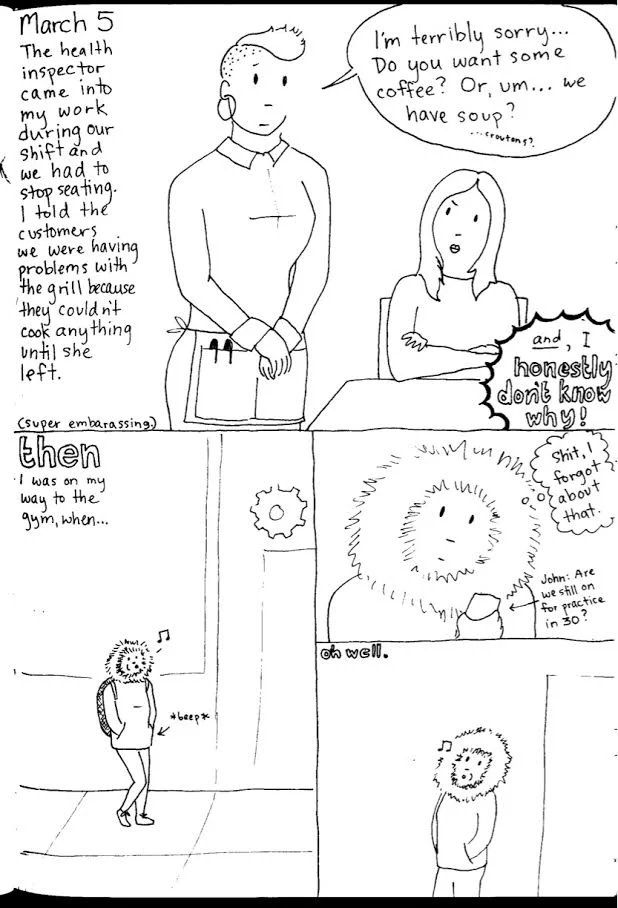 March 5
The health
inspector
came into
my work
during our
shift and
we had to
stop seating.
I told the
customers
we were having
problems with
the grill because
they couldn't
cook anything
until she
left.
(super embarassing.)
I'm terribly sorry...
Do you want some
coffee? Or, um... we
have soup?
...croutons?
and, I
honestly
don't know
why!
then
I was on my
way to the
gym, when...
*beep*
Shit, I
forgot
about
that.
John: Are
we still on
for practice
in 30?
oh well.